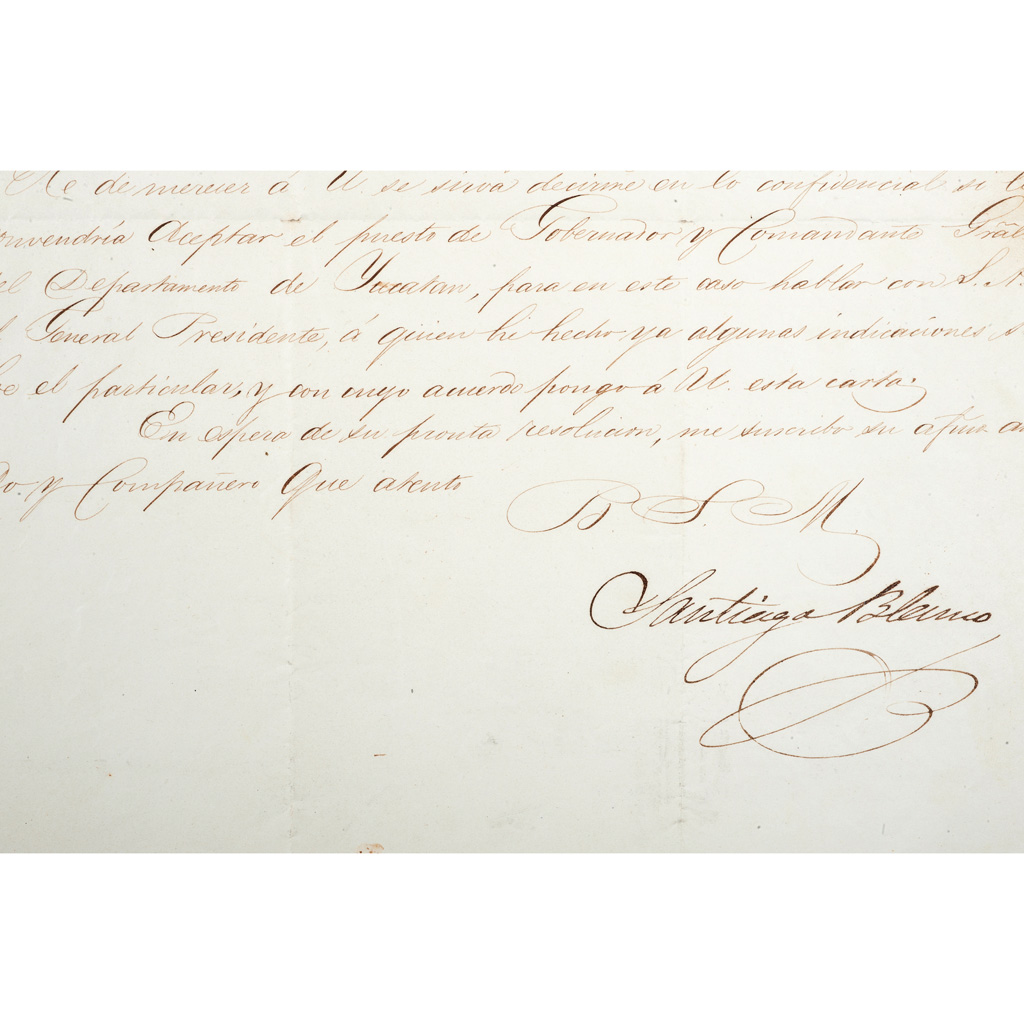 He de merecer á U. se sirva decirme en lo confidencial si l
onvendría Aceptar el puesto de Gobernador y Comandante Grãl
el Departamento de Yucatan, para en este caso hablar con S. A.
l General Presidente, á quien hé hecho ya algunas indicaciones s
re el particular, y con cuyo acuerdo pongo á U. esta carta.
En espera de su pronta resolucion, me suscribo su afmo a
do y Compañero Que atento
B. S. M.
Santiago Blanco